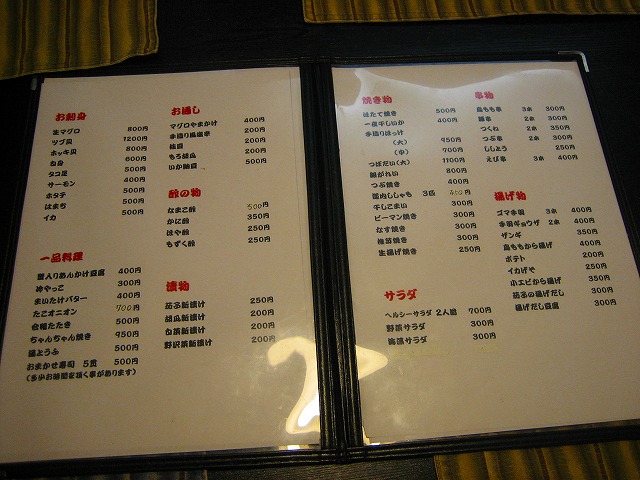 お刺身
生マグロ 800円
ツブ貝 1200円
ホッキ貝 800円
600円
タコ足 500円
サーモン 400円
ホタテ 500円
はまち 500円
イカ 500円
お通し
マグロやまかけ 400円
200円
枝豆 200円
もろ胡瓜 200円
いか 500円
酢の物
なまこ酢 500円
かに酢 350円
ほや酢 250円
もずく酢 250円
一品料理
蟹入りあんかけ豆腐 400円
冷やっこ 300円
まいたけバター 400円
たこオニオン 700円
たたき 500円
ちゃんちゃん焼き 950円
湯どうふ 500円
おまかせ寿司 5貫 500円
(多少お時間を頂く事があります)
漬物
茄子新漬け 250円
胡瓜新漬け 200円
白菜新漬け 200円
野沢菜新漬け 200円
焼き物
ほたて焼き 500円
一夜干しいか 400円
手造りほっけ
(大) 950円
(中) 700円
つぼだい(大) 1100円
銀がれい 800円
つぶ焼き 400円
ししゃも 3匹 350円
干しこまい 300円
ピーマン焼き 300円
なす焼き 300円
焼き 300円
生揚げ焼き 250円
サラダ
ヘルシーサラダ 2人前 700円
野菜サラダ 300円
サラダ 300円
串物
鳥もも串 3本 300円
豚串 2本 300円
つくね 2本 350円
つぶ串 2本 300円
ししとう 250円
えび串 3本 400円
揚げ物
ゴマ手羽 3本 400円
手羽ギョウザ 2本 400円
ザンギ 350円
鳥ももから揚げ 400円
ポテト 200円
イカげそ 250円
小エビから揚げ 350円
茄子の揚げだし 300円
揚げだし豆腐 300円